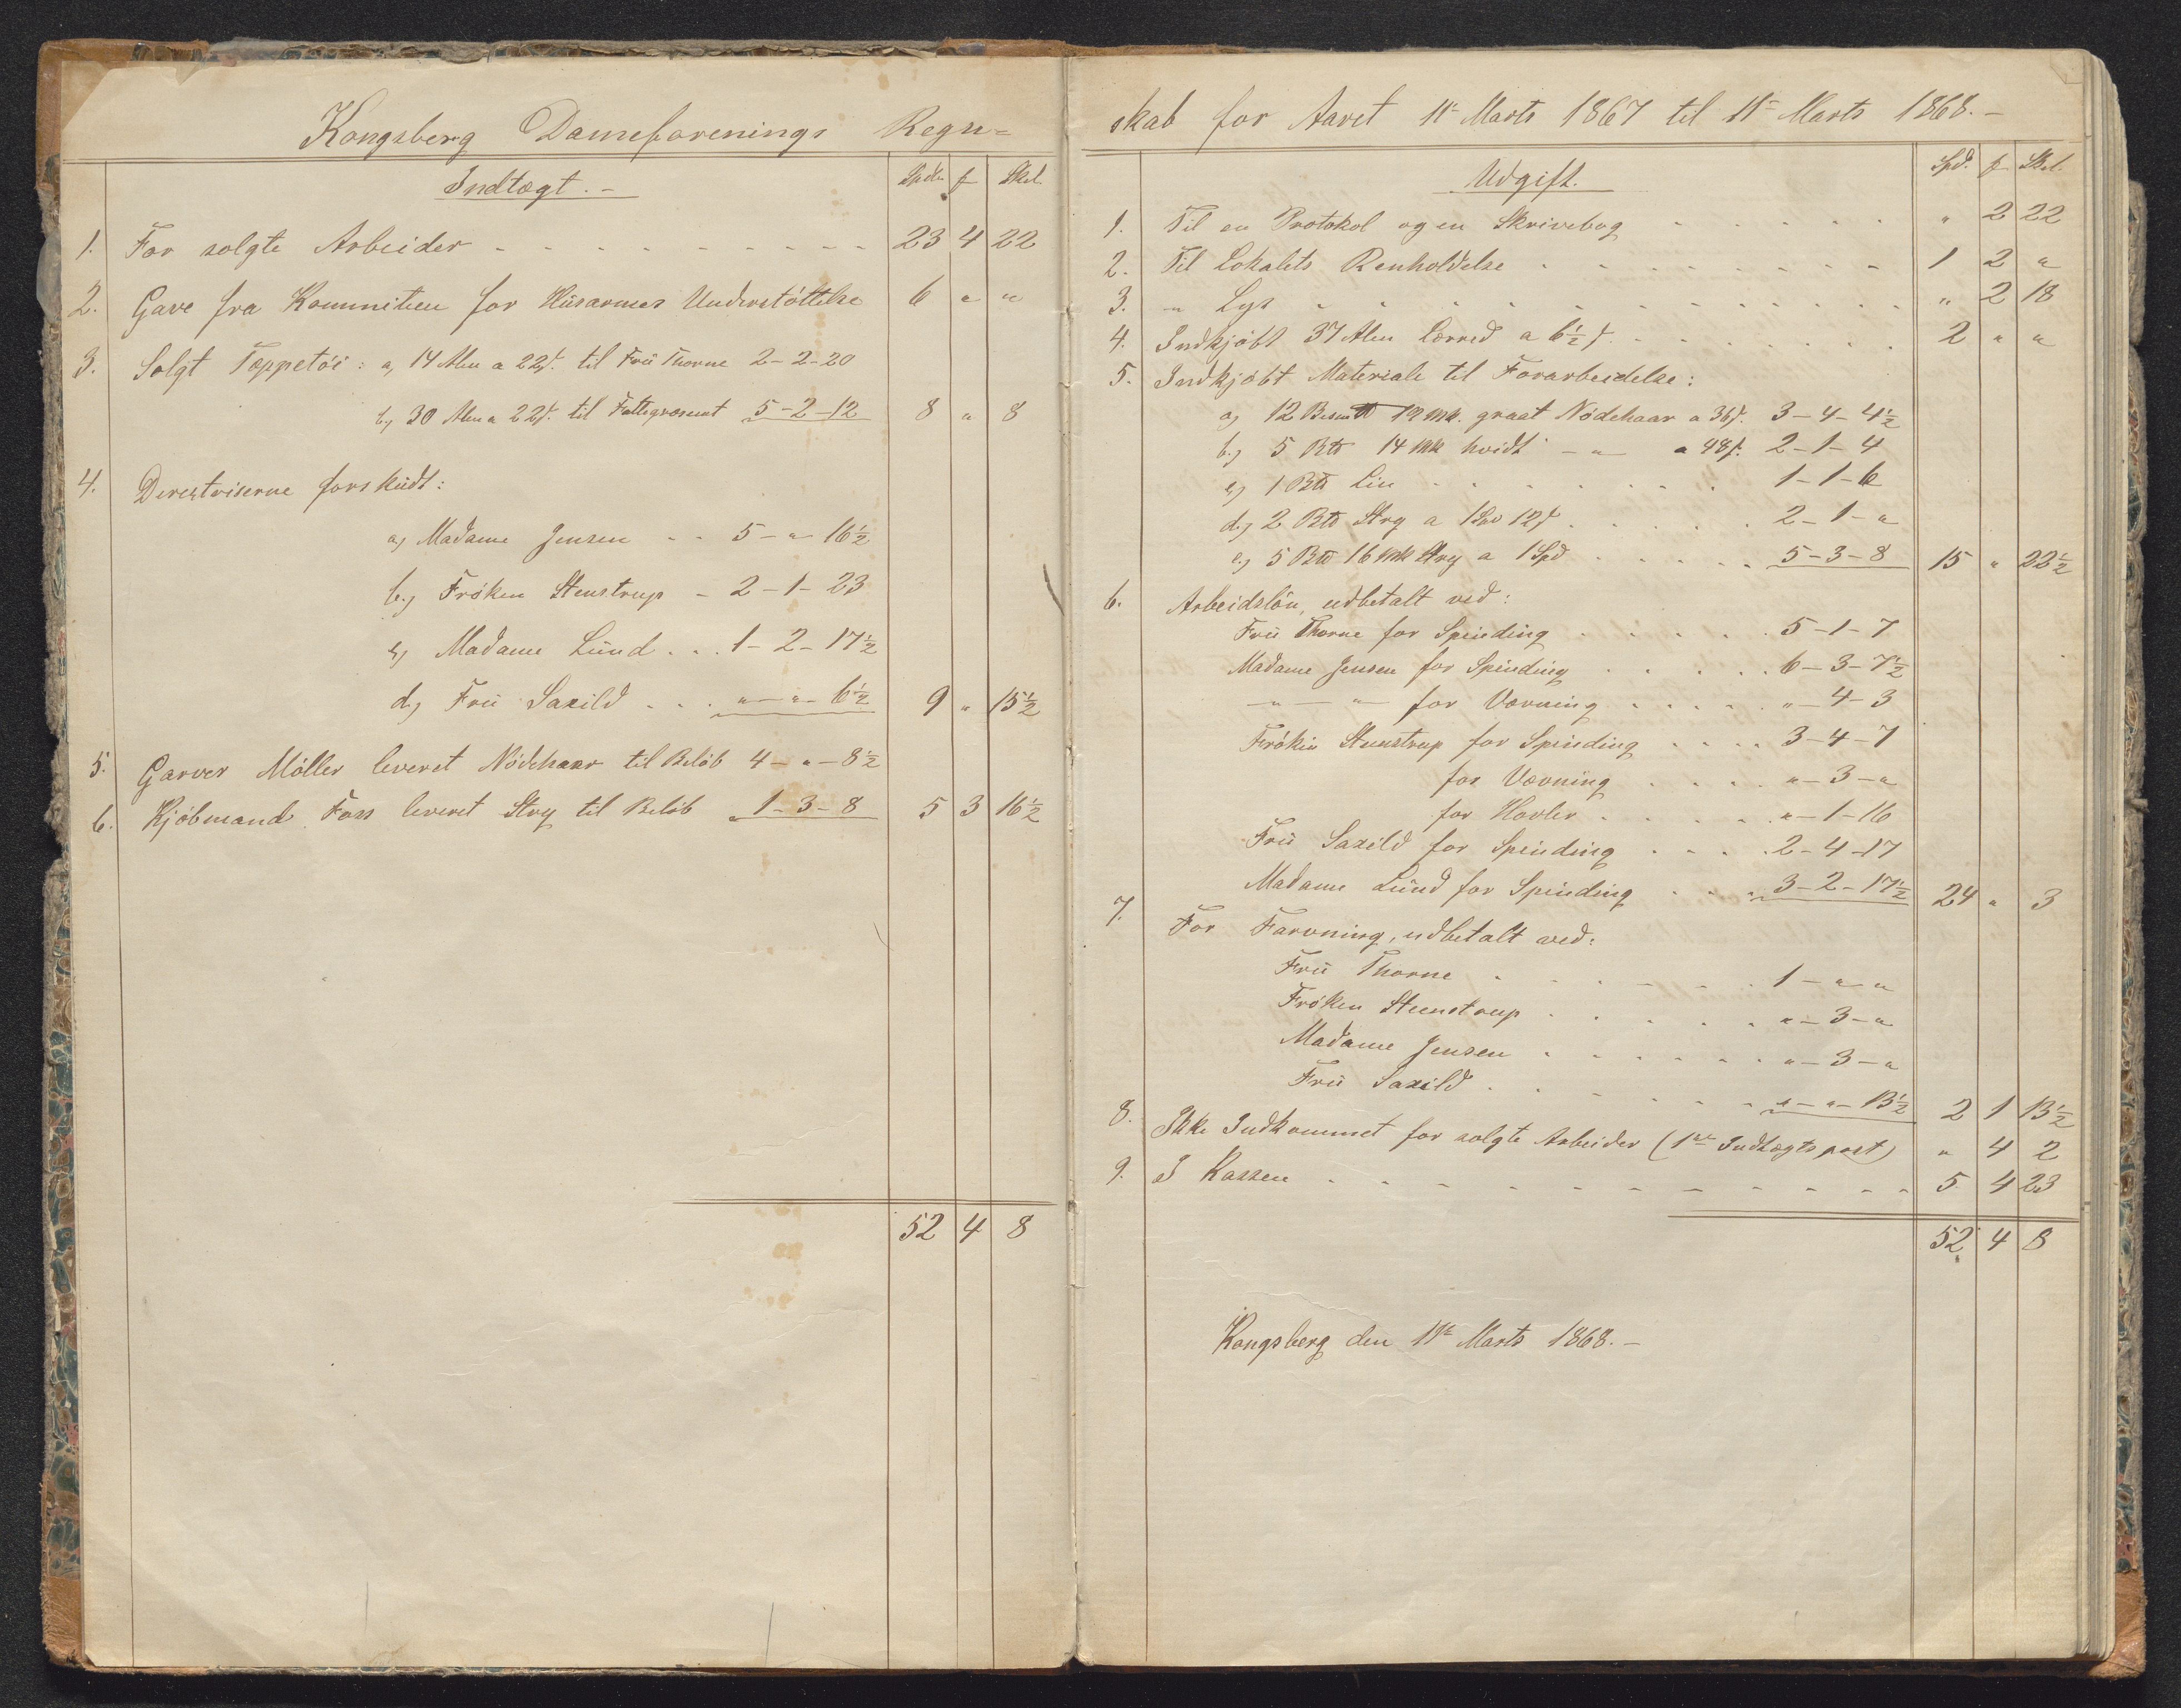 Kongsberg Dameforenings Regn=
Indtægt. -
Spdlr. f Skil.
1. For solgte Arbeider - - - - - - - - - - 23 4 22
2. Gave fra Kommiteen for Húsarmes Understöttelse 6 " "
3. Solgt Tæppetöi: a, 14 Alen a 22 f. til Frú Thorne 2-2-20
b, 30 Alen a 22 f. til Fattigvæsenet 5-2-12 8 " 8
4. Directriserne forskúdt:
a, Madame Jensen - - 5-"-16½
b., Fröken Stenstrup - 2-1-23
c, Madame Lúnd . . . 1-2-17½
d, Frú Saxild . . . "-"-6½ 9 " 15½
5. Garver Möller leveret Nödehaar til Belöb 4-"-8½
6. Kjöbmand Foss leveret Stry til Belöb 1-3-8 5 3 16½
52 4 8
skab for Aaret 11te Marts 1867 til 11te Marts 1868. -
Udgift.
Spd. f Skil.
1. Til en Protokol og en Skrivebog - - - - - " 2 22
2. Til Lokalets Renholdelse - - - - - - - 1 2 "
3. " Lys - - - - - - - - - - " 2 18
4. Indkjöbt 37 Alen Lærred a 6½ f. - - - - - - 2 " "
5. Indkjöbt Materiale til Forarbeidelse:
a, 12 Bismtt 19 Mk. graat Nödehaar a 36 f. 3-4-4½
b., 5 Btt 14 Mk hvidt - " - a 48 f. 2-1-4
c, 1 Btt Lin - - - - - - - 1-1-6
d, 2 Btt Stry a 1 Spd 12 f . . . . . 2-1-"
e, 5 Btt 16 Mk Stry a 1 Spd . . . . . 5-3-8 15 " 22½
6. Arbeidslön, udbetalt ved:
Frú Thorne for Spinding . . . . . 5-1-7
Madame Jensen for Spinding . . . . . 6-3-7½
- " - " - for Vævning . . . . . "-4-3
Fröken Steenstrup for Spinding . . . . 3-4-7
for Vævning . . . . "-3-"
for Hovler . . . . . "-1-16
Frú Saxild for Spinding . . . . 2-4-17
Madame Lúnd for Spinding . . . 3-2-17½ 24 " 3
7. For Farvning, udbetalt ved:
Frú Thorne - - - - - - 1-"-"
Fröken Steenstrup - - - - - "-3-"
Madame Jensen - - - - - - "-3-"
Frú Saxild - - - - - - "-"-13½ 2 1 13½
8. Ikke Indkommet for solgte Arbeider (1ste Indtægtspost) " 4 2
9. I Kassen - - - - - - - - - - 5 4 23
52 4 8
Kongsberg den 11te Marts 1868. -